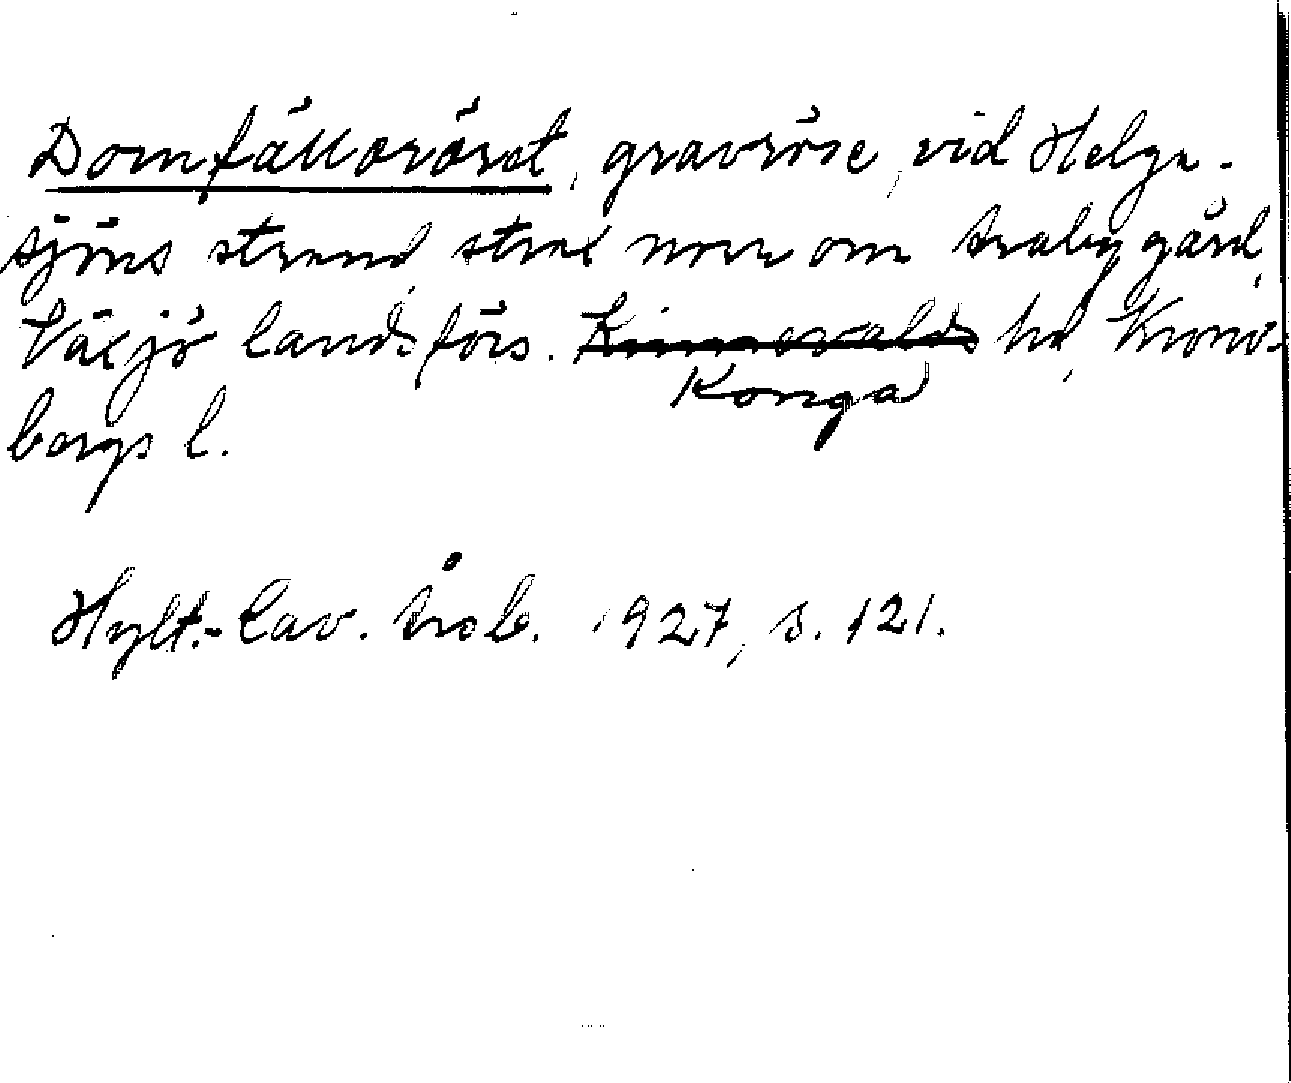 Domfällaröset, gravröse, vid Helga-
sjöns strand strax norr om Araby gård,
Växjö landsförs. Kinnevalds hd, Krono-
Konga
bergs l.
Hylt.-Cav. Årsb. 1927, s. 121.